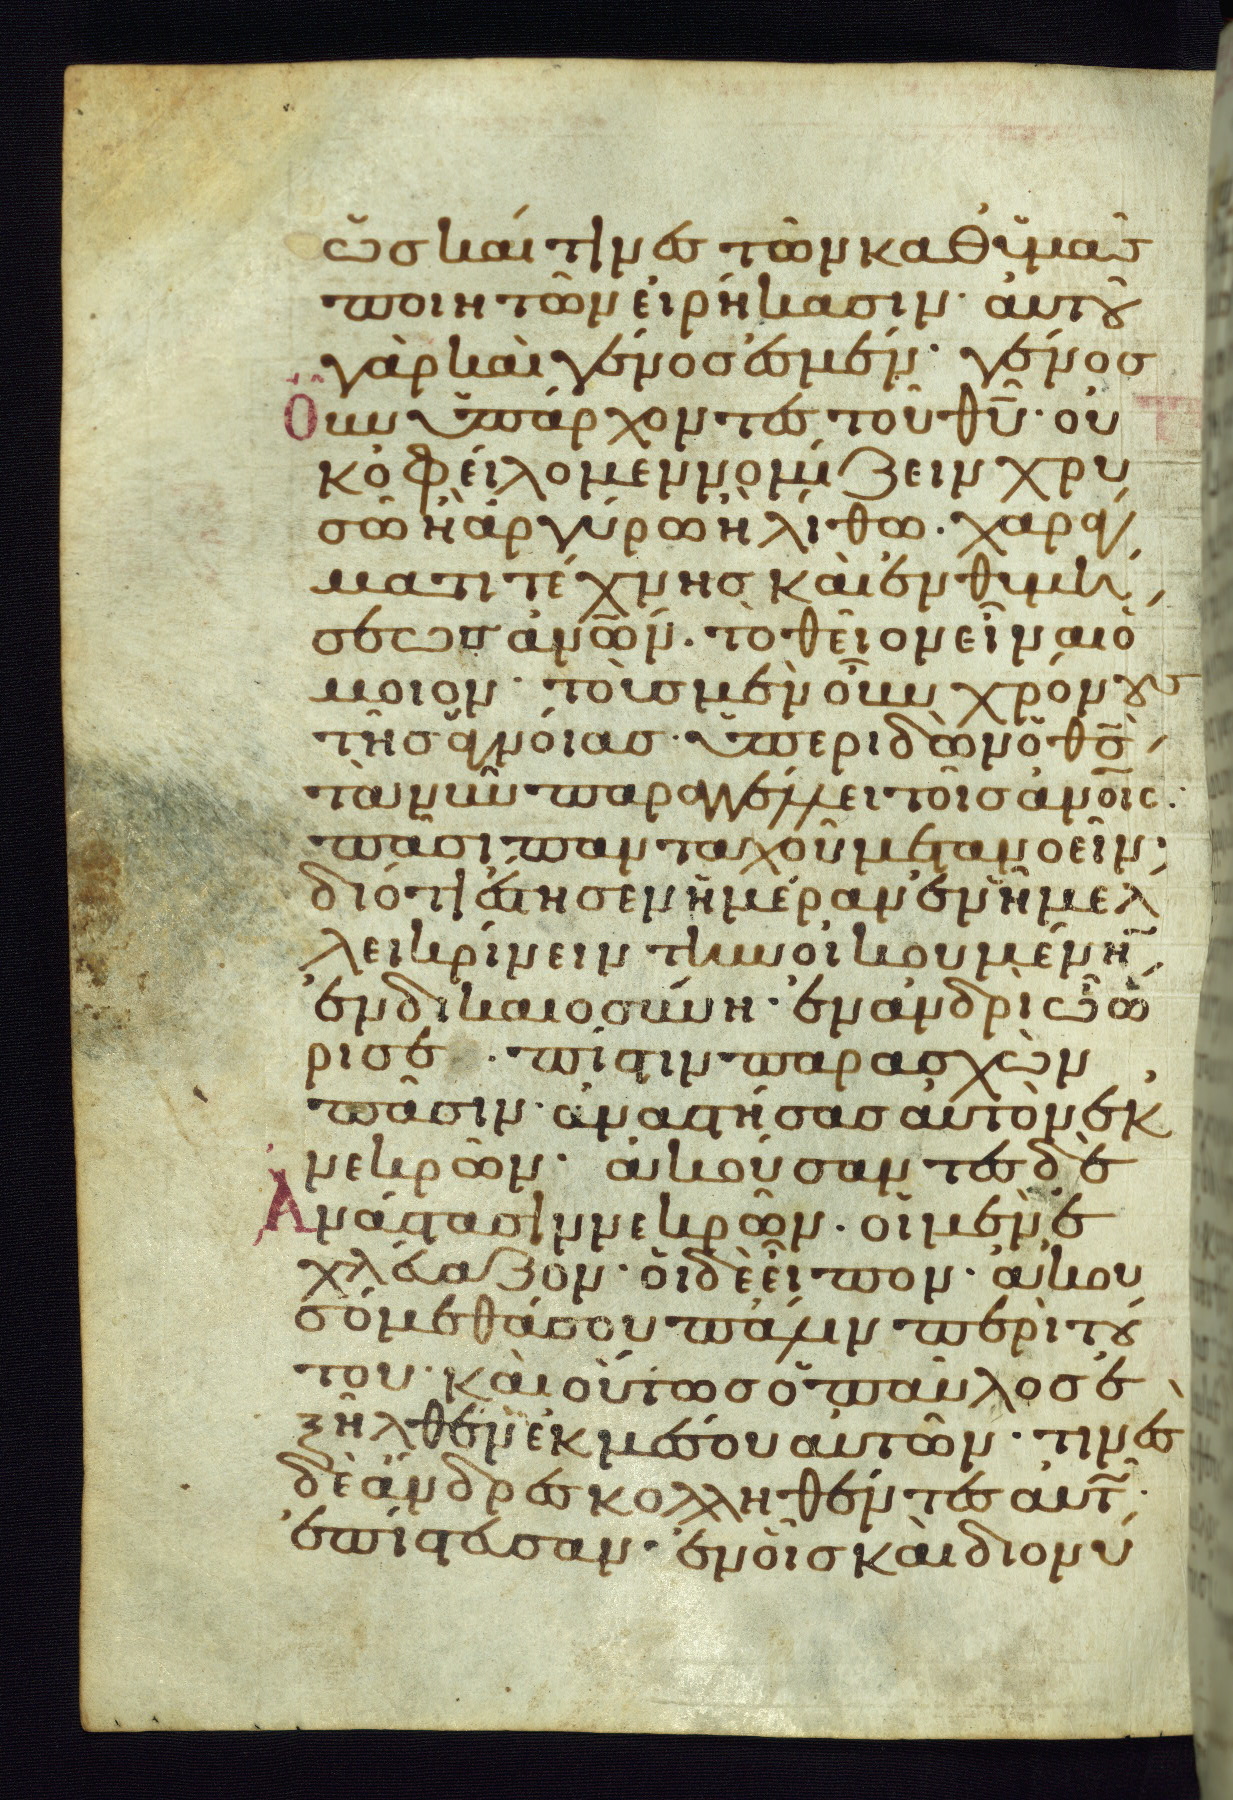 ὡς καί τινες τῶν καθ ὑμᾶς
ποιητῶν εἰρήκασιν· αὐτοῦ
γὰρ καὶ γένος ἐσμέν· γένος
Οὖν ὑπάρχοντες τοῦ θυ̅· οὐ
κ ὀφείλομεν νομίζειν χρυ
σῶ ἢ ἀργύρω ἢ λίθω· χαρά
γματι τέχνης καὶ ἐνθυμή
σεως ἀνω̅ν· τὸ θεῖον εἶναι ὅ
μοιον· τοὺς μὲν οὖν χρόνους
τῆς ἀγνοίας· ὑπεριδὼν ὁ θς̅
τὰ νῦν παραγγέλλει τοῖς ἀνοι̅ς·
πᾶσι πανταχοῦ μετανοεῖν·
διότι ἔστησεν ἡμέραν ἐν ἧ μέλ
λει κρίνειν τὴν οἰκουμένη̅
ἐν δικαιοσύνη· ἐν ἀνδρὶ ὧ ὥ
ρισε · πίστιν παρασχὼν
πᾶσιν· ἀναστήσας αὐτὸν ἐκ
νεκρῶν· ἀκούσαντες δὲ
Ἀνάστασιν νεκρῶν· οἱ μὲν ἐ
χλέυαζον· οἱ δὲ εἶπον· ἀκου
σόμεθά σου πάλιν περὶ τού
του· καὶ οὕτως ὁ παῦλος ἐ
ξῆλθεν ἐκ μέσου αὐτῶν· τινὲς
δὲ ἄνδρες κολληθέντες αὐτῶ·
ἐπίστευσαν· ἐν οἷς καὶ διονύ